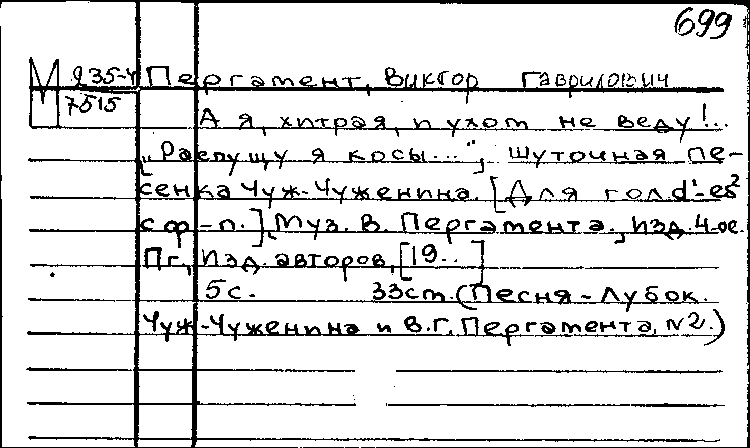 699
М 235-4 Пергамент, Виктор Гаврилович
7515
А я, хитрая, и ухом не веду!..
„Распущу я косы...“, шуточная пе-
сенка Чуж-Чуженина. [Для гол. d¹-es²
с ф-п.] Муз. В. Пергамента. Изд. 4-ое.
Пг., Изд. авторов, [19..]
5 с. 33 cm. (Песня-Лубок.
Чуж-Чуженина и В.Г. Пергамента, №2.)